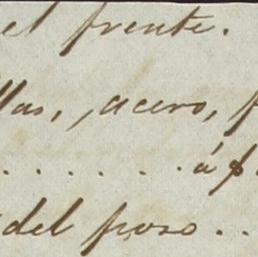 el frente.
llas, acero, f
. . . . . . . á f.
del poso . .